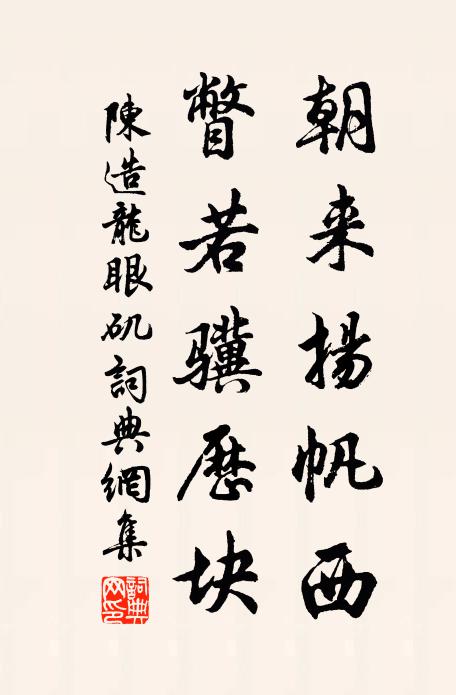 朝来揚帆西
瞥若骥歷块
陳造龍眼矶詞典網集
詞典网印